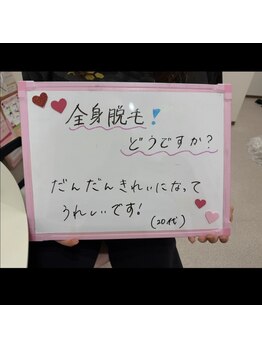 全身脱毛!
どうですか?
だんだんきれいになって
うれしいです!
(20代)